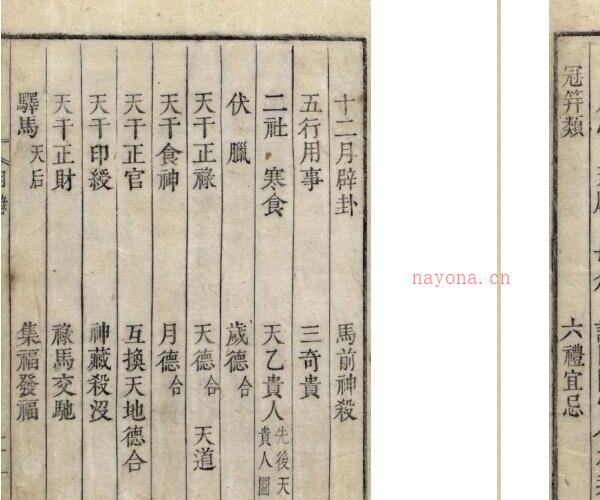 冠笄類
六禮宜忌
十二月辟卦
馬前神殺
五行用事
三奇貴
二社 寒食
天乙貴人 先後天貴人圖
伏臘
歲德合
天干正祿
天德合 天道
天干食神
月德合
天干正官
互換天地德合
天干印綬
神藏殺沒
天干正財
祿馬交馳
驛馬 天后
集福發福
nayona.cn